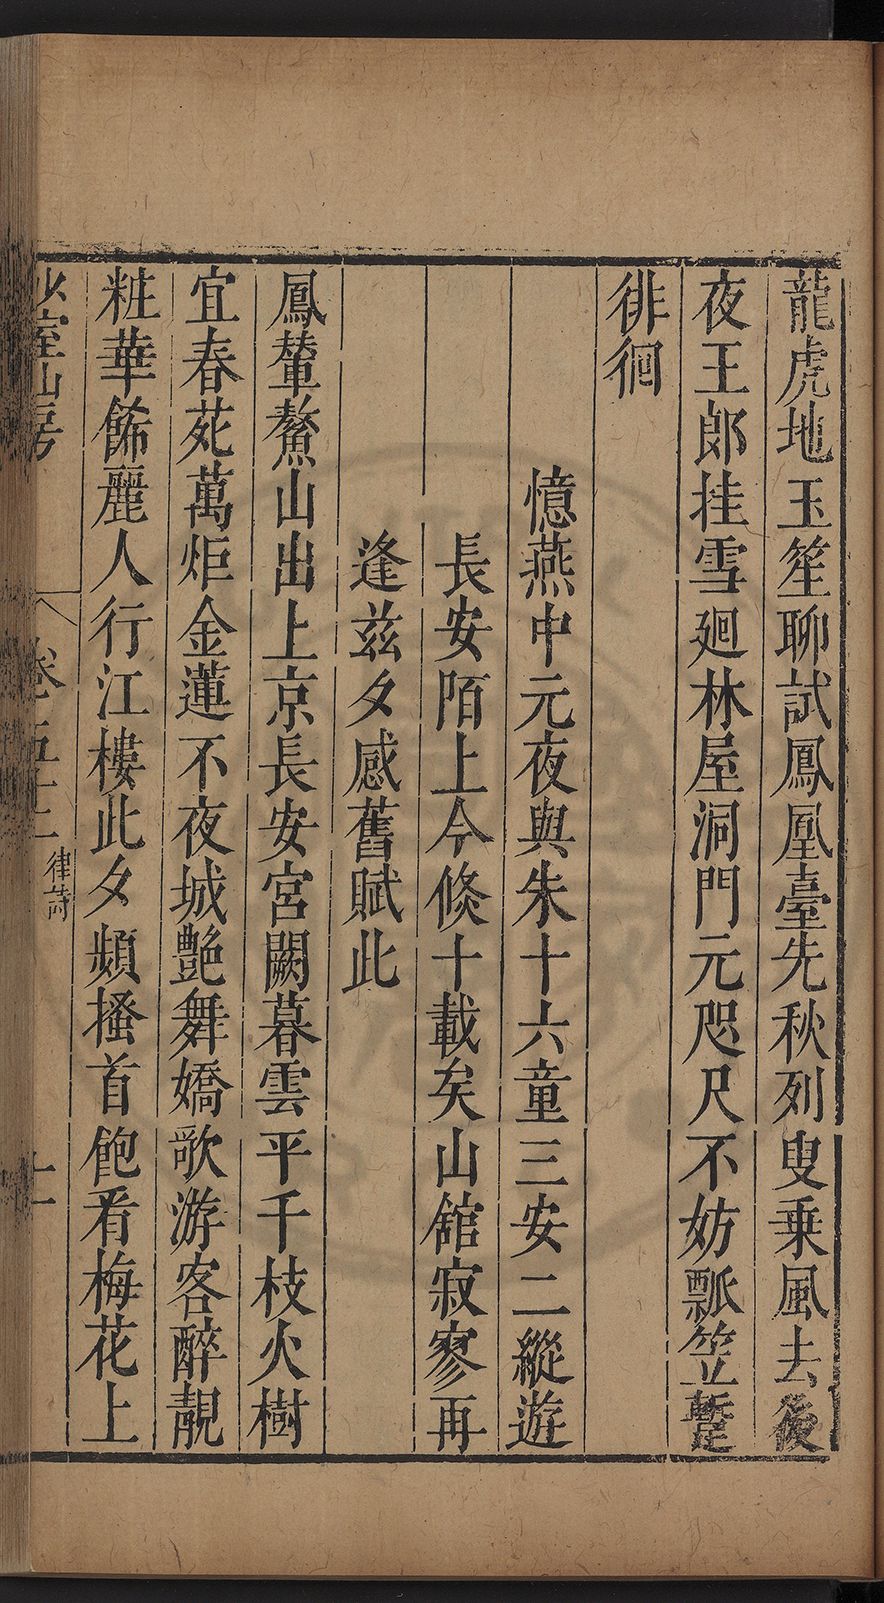 龍虎地玉笙聊試鳳凰臺先秋列叟乗風去後
夜王郎挂雪廻林屋洞門元咫尺不妨瓢笠蹔
徘徊
憶燕中元夜與朱十六童三安二縱遊
長安陌上今倏十載矣山舘寂寥再
逢兹夕感舊賦此
鳳輦鰲山出上京長安宮闕暮雲平千枝火樹
宜春苑萬炬金蓮不夜城艶舞嬌歌游客醉靚
粧華餙麗人行江樓此夕頻搔首飽看梅花上
少室山房
卷五十二
律詩
十一